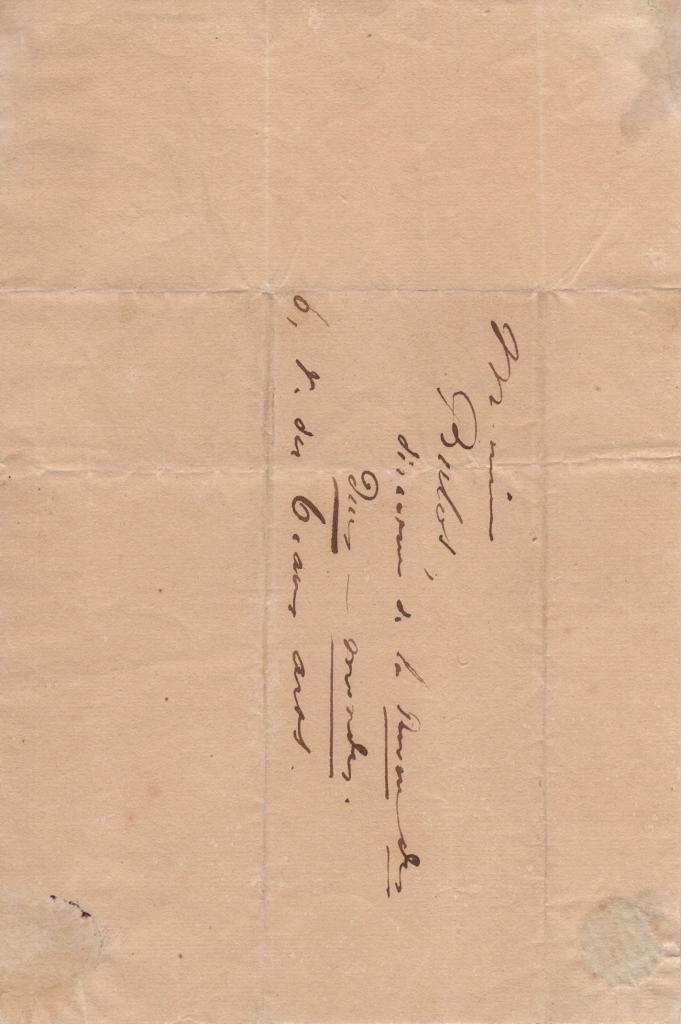 Monsieur
Buloz,
directeur de la Revue des
Deux – mondes.
6, r. des beaux arts.